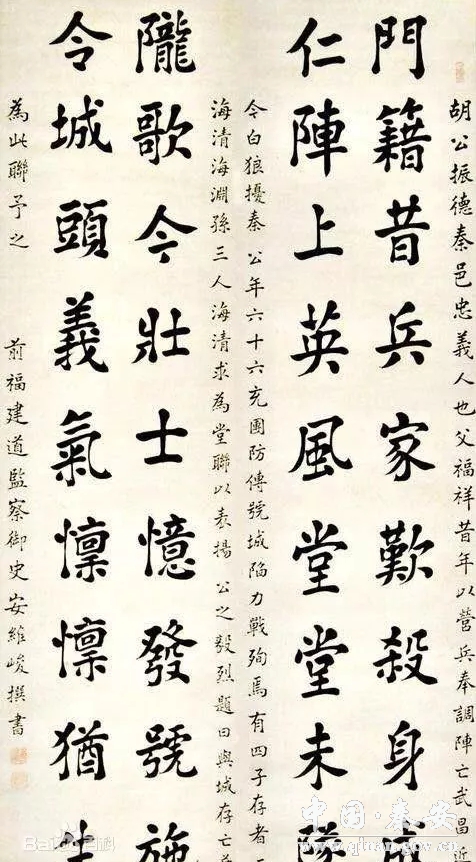 胡公振德秦邑忠義人也父福祥昔年以營兵奉調陣亡武昌
門籍昔兵家歎殺身成
仁陣上英風堂堂未
令白狼擾秦 公年六十六充團防傳號城陷力戰殉焉有四子存者
海清海淵孫三人海清求為堂聯以表揚 公之毅烈題曰與城存亡
隴歌今壯士憶發號施
令城頭義氣懍懍猶
為此聯予之 前福建道監察御史安維峻撰書
Baidu百科
中国·秦安
www.qinan.gov.cn